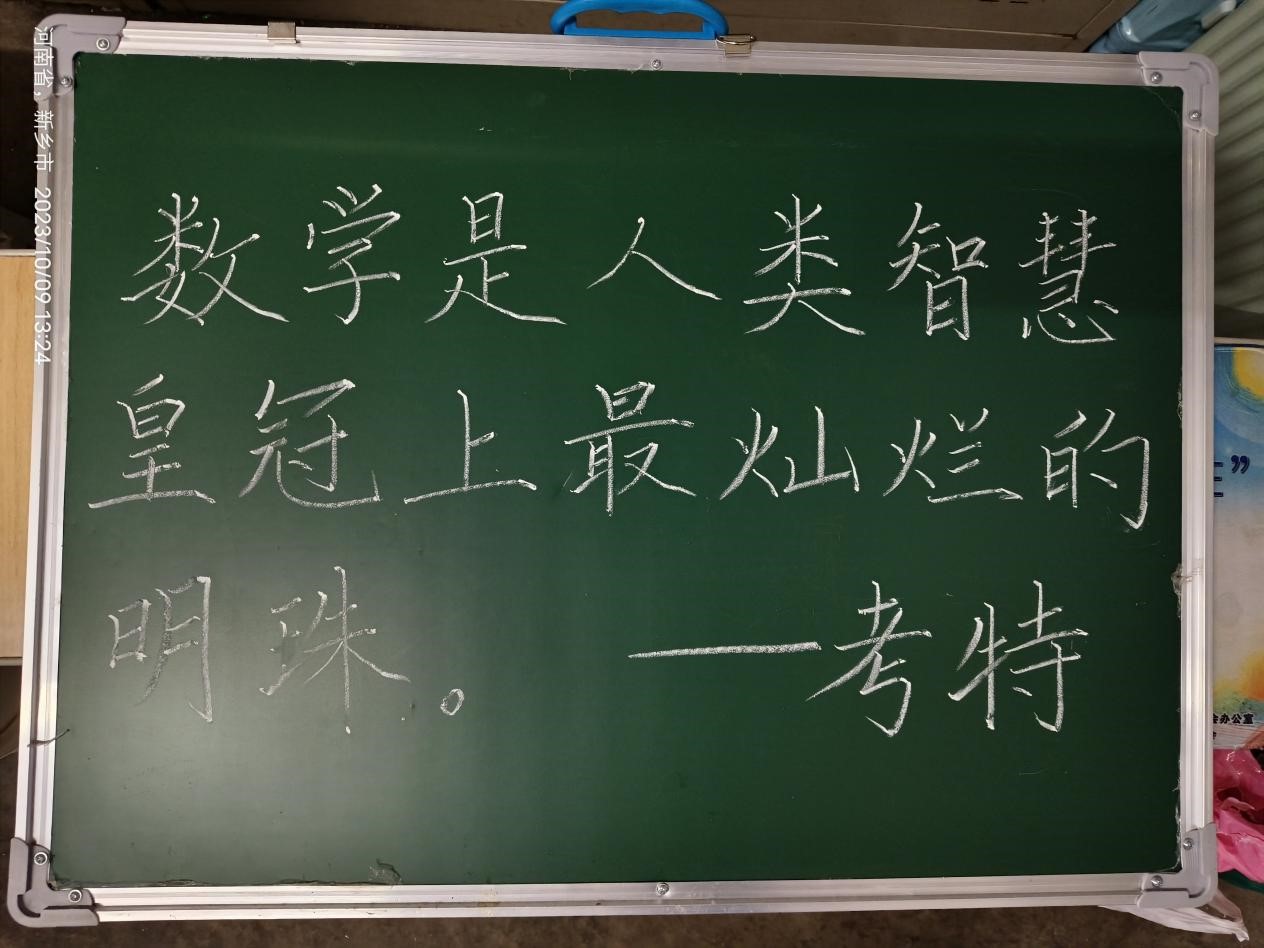 数学是人类智慧
皇冠上最灿烂的
明珠。 ——考特
河南省，新乡市 2023/10/09 13:24
办公室